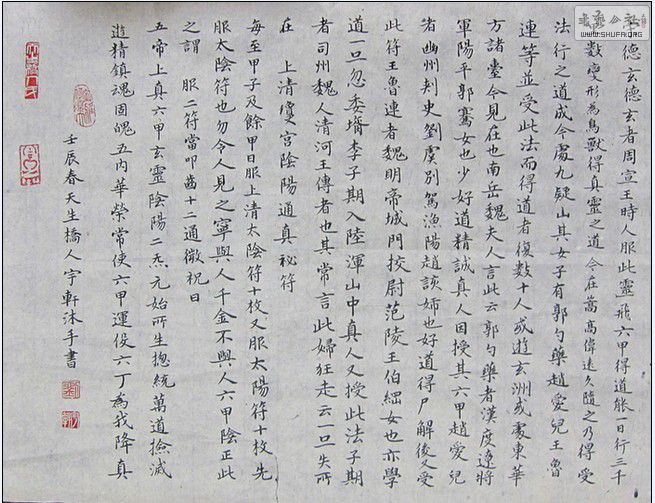 WWW.SHUFA.ORG
德玄德玄者周宣王時人服此靈飛六甲得道能一日行三千
數變形為鳥獸得真靈之道 今在嵩高偉遠久隨之乃得受
法行之道成今處九疑山其女子有郭勺藥趙愛兒王魯
連等並受此法而得道者復數十人或遊玄洲或處東華
方諸臺今見在也南岳魏夫人言此云郭勺藥者漢度遼將
軍陽平郭騫女也少好道精誠真人因授其六甲趙愛兒
者幽州刾史劉虞別駕漁陽趙該姊也好道得尸解後又受
此符王魯連者魏明帝城門挍尉范陵王伯綱女也亦學
道一旦忽委壻李子期入陸渾山中真人又授此法子期
者司州魏人清河王傳者也其常言此婦狂走云一旦失所
在 上清瓊宮陰陽通真祕符
每至甲子及餘甲日服上清太陰符十枚又服太陽符十枚先
服太陰符也勿令人見之寧與人千金不與人六甲陰正此
之謂 服二符當叩齒十二通微祝曰
五帝上真六甲玄靈陰陽二炁元始所生揔統萬道撿滅
遊精鎮魂固魄五內華榮常使六甲運役六丁為我降真
壬辰春天生橋人宇軒沐手書